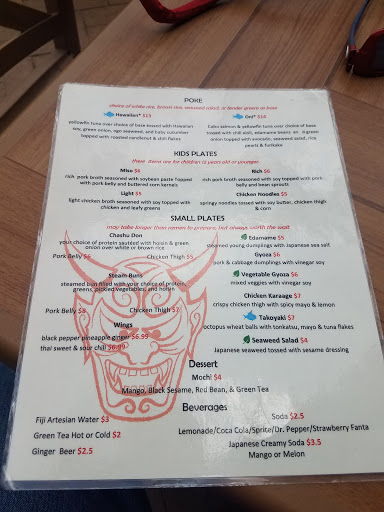 POKE
choice of white rice, brown rice, seaweed salad, or tender greens as base
Hawaiian* $13
yellowfin tuna over choice of base tossed with Hawaiian
soy, green onion, ego seaweed, and baby cucumber
topped with roasted candlenut & chili flakes
Ora* $14
Cabo salmon & yellowfin tuna over choice of base
tossed with chili wish, edamame beans, and green
onion topped with avocado, seaweed salad, rice
pearls & furikake
KIDS PLATES
these items are for children 12 years old or younger
Miso $6
rich pork broth seasoned with soybean paste topped
with pork belly and buttered corn kernels
Rich $6
rich pork broth seasoned with soy topped with pork
belly and bean sprouts
Light $5
light chicken broth seasoned with soy topped with
chicken and leafy greens
Chicken Noodles $5
springy noodles tossed with soy butter, chicken thigh
& corn
SMALL PLATES
may take longer than ramen to prepare, but always worth the wait
Chashu Don
your choice of protein sautéed with hoisin & green
onion over white or brown rice
Pork Belly $6 Chicken Thigh $5
Steam Buns
steamed bun filled with your choice of protein,
greens, pickled vegetables and hoisin
Pork Belly $8 Chicken Thigh $7
Wings
black pepper pineapple ginger $6.99
thai sweet & sour chili $6.99
Edamame $5
steamed young dumplings with Japanese sea salt
Gyoza $6
pork & cabbage dumplings with vinegar soy
Vegetable Gyoza $6
mixed veggies with vinegar soy
Chicken Karaage $7
crispy chicken thigh with spicy mayo & lemon
Takoyaki $7
octopus wheat balls with tonkatsu, mayo & tuna flakes
Seaweed Salad $4
Japanese seaweed tossed with sesame dressing
Dessert
Mochi $4
Mango, Black Sesame, Red Bean, & Green Tea
Beverages
Fiji Artesian Water $3
Green Tea Hot or Cold $2
Ginger Beer $2.5
Soda $2.5
Lemonade/Coca Cola/Sprite/Dr. Pepper/Strawberry Fanta
Japanese Creamy Soda $3.5
Mango or Melon